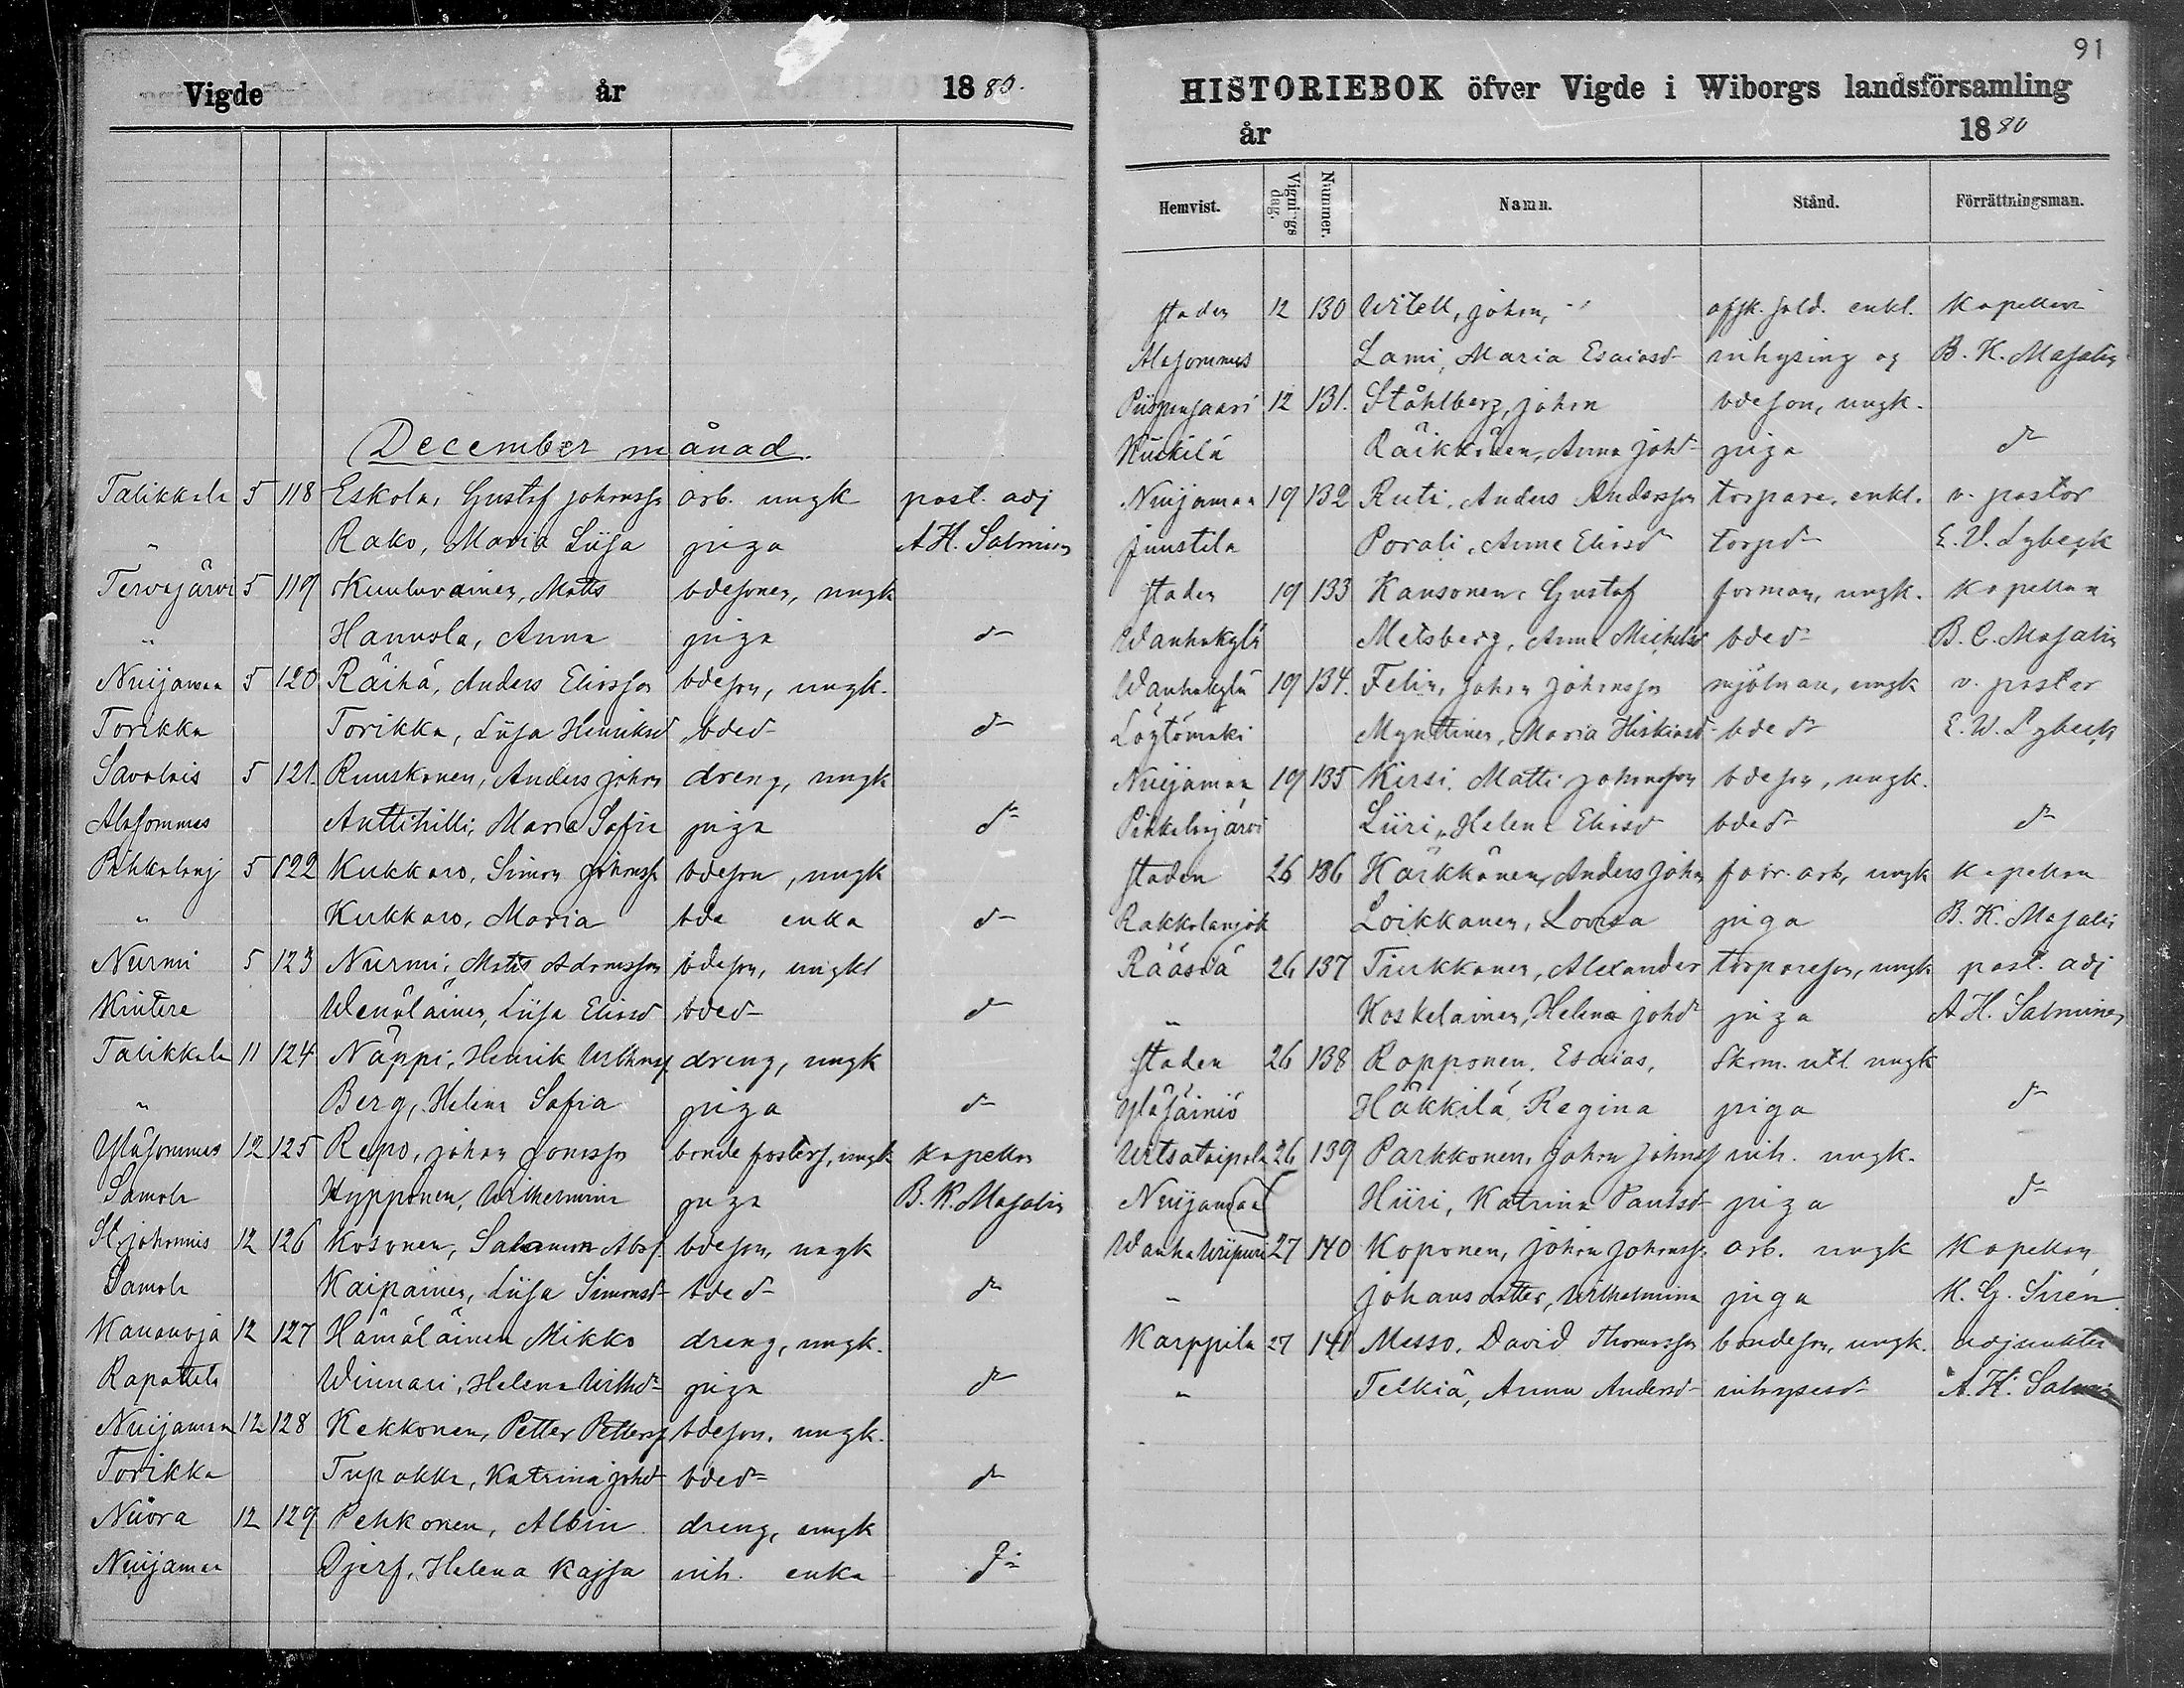 Vigde år 1880.
December månad.
Talikkala 5 118 Eskola, Gustaf Johansso arb. ungk past. adj
" Rako, Maria Liisa piga A H. Salminen
Tervajärvi 5 119 Kuuluvainen, Matts bdesonen, ungk
" Hannula, Anna piga d-
Nuijamaa 5 120 Räihä, Anders Eliasson bdeson, ungk.
Torikka Torikka, Liisa Henriksd bded- d-
Savolais 5 121. Ruuskonen, Anders Johan dreng, ungk
Alasommes Anttihilli, Maria Sofia piga d-
Pihkalanj 5 122 Kukkaro, Simon Johanss bdeson, ungk
" Kukkaro, Maria bde enka d-
Nurmi 5 123 Nurmi, Matts Adamsson bdeson, ungkl
Kintere Wenäläinen, Liisa Eliasd bded- d-
Talikkala 11 124 Näppi, Henrik Wilhmsf dreng, ungk
" Berg, Helena Sofia piga d-
Yläsommes 12 125 Repo, Johan Jonasson bonde fosters, ungk kapellan
Samola Hypponen, Wilhelmina piga B. K. Majalin
St Johannis 12 126 Kosonen, Salomon Absf. bdeson, ungk
Samola Kaipainen, Liisa Simonsd- bded- d-
Kananoja 12 127 Hämäläinen Mikko dreng, ungk.
Rapattila Winnari, Helena Wilhd- piga d-
Nuijamaa 12 128 Kekkonen, Petter Pettersf bdeson, ungk.
Torikka Tupakka, Katrina Johd- bded- d-
Nuora 12 129 Pehkonen, Albin dreng, ungk
Nuijamaa Djerf, Helena Kajsa inh. enka d-
91
HISTORIEBOK öfver Vigde i Wiborgs landsförsamling
år 1880
Hemvist. Vignings dag. Nummer. Namn. Stånd. Förrättningsman.
staden 12 130 Witell, Johan, afsk. sold. enkl. kapellan
Alasommes Lami, Maria Esaiasd- inhysing og B. K. Majalin
Piispansaari 12 131. Ståhlberg, Johan bdeson, ungk.
Kuckila Räikkönen, Anna Johd- piga d-
Nuijamaa 19 132 Ruti, Anders Andersson torpare, enkl. v. pastor
Juustila Porali, Anna Eliasd torpd- E. V. Lybeck
staden 19 133 Kansonen, Gustaf forman, ungk. Kapellan
Wanhakylä Metsberg, Anna Michelsd bded- B. C. Majalin
Wanhakylä 19 134. Felin, Johan Johansson mjölnare, ungk v. pastor
Löytömäki Mynttinen, Maria Hiskiasd- bded- E. W. Lybeck
Nuijamaa 19 135 Kirsi, Matti Johansson bdeson, ungk.
Pihkalanjärvi Liiri, Helena Eliasd bded- d-
staden 26 136 Härkkönen, Anders Johan fabr. arb, ungk kapellan
Rakkolanjok Loikkanen, Lovisa piga B. K. Majalin
Rääsiä 26 137 Tiukkanen, Alexander torpareson, ungk past. adj
" Koskelainen, Helena Johd- piga A H. Salminen
staden 26 138 Ropponen, Esaias, Skrm. utl ungk
Yläsäiniö Häkkilä Regina piga d-
Urtsataipale 26 139 Parkkonen, Johan Johnsf inh. ungk.
Nuijamaa Hiiri, Katrina Paulsd- piga d-
Wanha Wiipuri 27 140 Koponen, Johan Johanss. arb. ungk Kapellan
" Johansdotter, Wilhelmina piga K. G. Sirén.
Karppila 27 141 Messo, David Thomasson bondeson, ungk. adjunkten
" Telkiä, Anna Andersd- inhysesd- A. H. Salminen